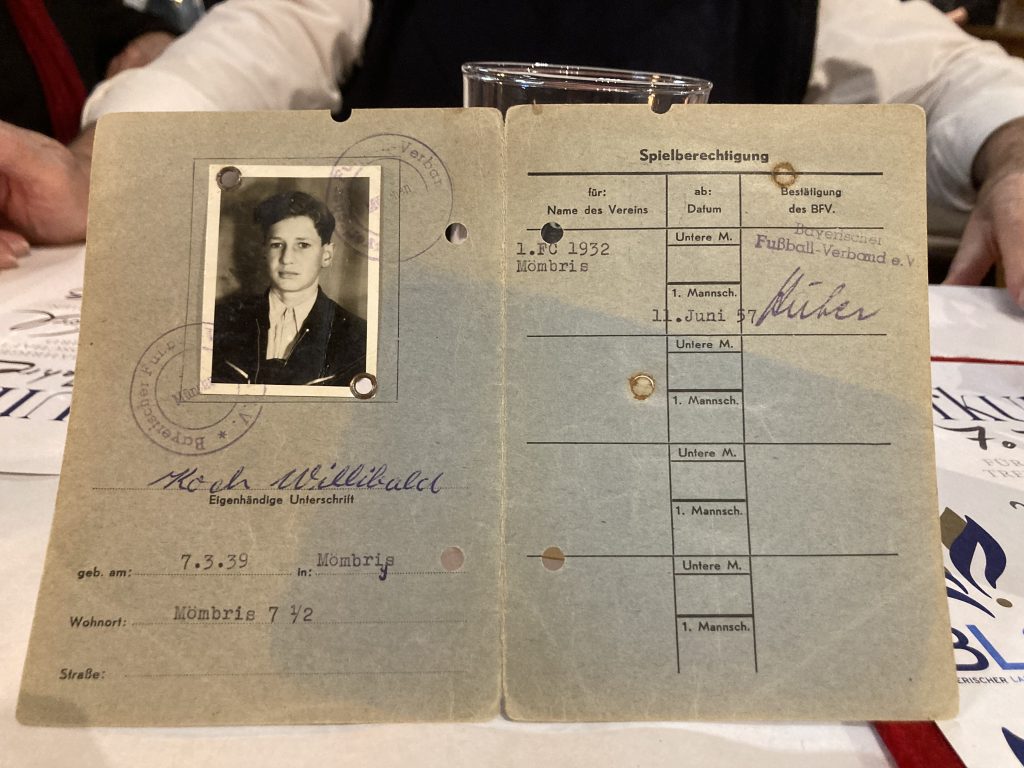 Koch Willibald
Eigenhändige Unterschrift
geb. am: 7.3.39 in: Mömbris
Wohnort: Mömbris 7 1/2
Straße:
Bayerischer
Spielberechtigung
für: ab: Bestätigung
Name des Vereins Datum des BFV.
Untere M.
1.FC 1932
Mömbris
Bayerischer
Fußball-Verband e.V.
1. Mannsch.
11.Juni 57 Huber
Untere M.
1. Mannsch.
Untere M.
1. Mannsch.
Untere M.
1. Mannsch.
FÜR
BL